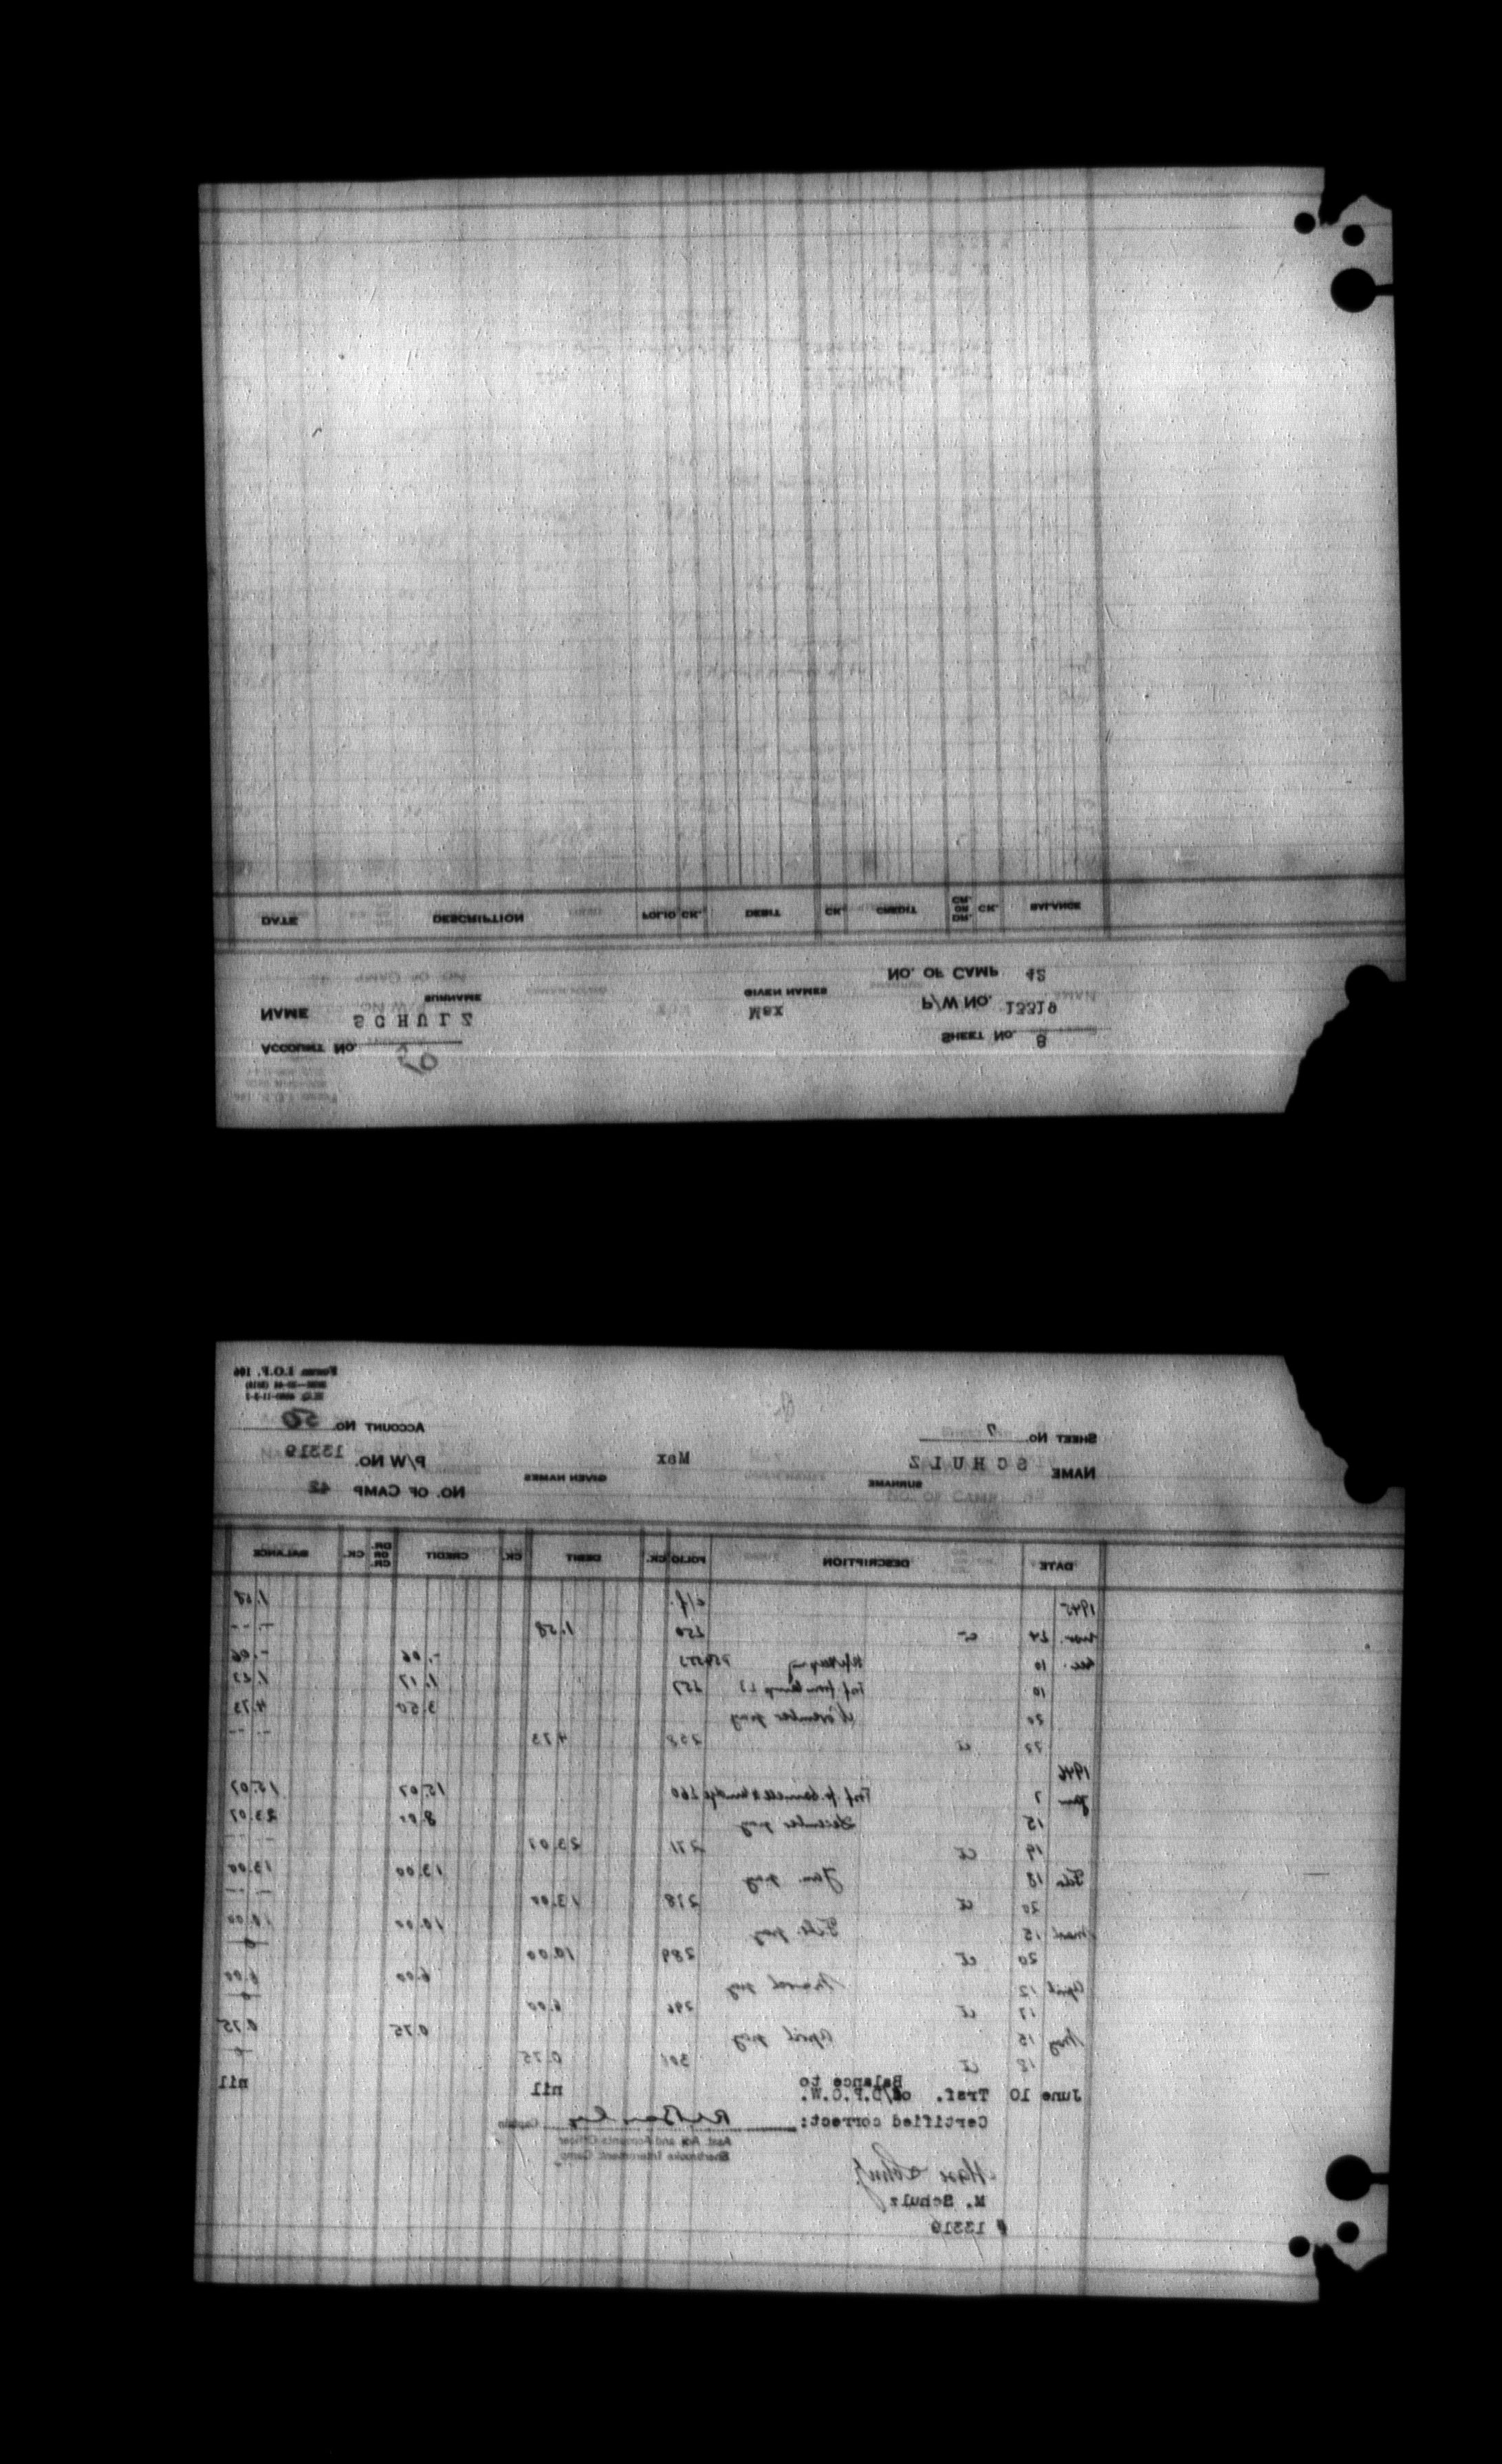 DATE DESCRIPTION FOLIO CK. DEBIT CK. CREDIT CR. OR DR. CK. BALANCE
NO. OF CAMP 42
NAME SCHULZ SURNAME Max GIVEN NAMES P/W NO. 13319
ACCOUNT NO. 50 SHEET NO. 8
Form I.O.P. 106
SHEET NO. 7 ACCOUNT NO. 50
NAME SCHULZ Max P/W NO. 13319
SURNAME GIVEN NAMES NO. OF CAMP 42
DATE DESCRIPTION FOLIO CK. DEBIT CK. CREDIT DR. OR CR. CK. BALANCE
1945 c/f. 1.58
Nov. 24 250 1.58 - --
Dec. 10 -.06 -.06
10 Trsf from Camp 23 257 1.17 1.23
20 November pay 3.50 4.73
22 ct 258 4.73 - --
1946
Jan 7 Trsf fr. 260 15.07 15.07
15 December pay 8.00 23.07
19 ct 271 23.07 - --
Feb 18 Jan. pay 13.00 13.00
20 ct 278 13.00 - --
March 15 Feb. pay 10.00 10.00
20 ct 289 10.00 0
April 12 March pay 6.00 6.00
17 ct 296 6.00 0
May 15 April pay 0.75 0.75
18 ct 301 0.75 0
Balance to
June 10 Trsf. od/D.P.O.W. nil nil
Certified correct: Captain
Asst. Adj. and Accounts Officer
Sherbrooke Internment Camp
M. Schulz
# 13319